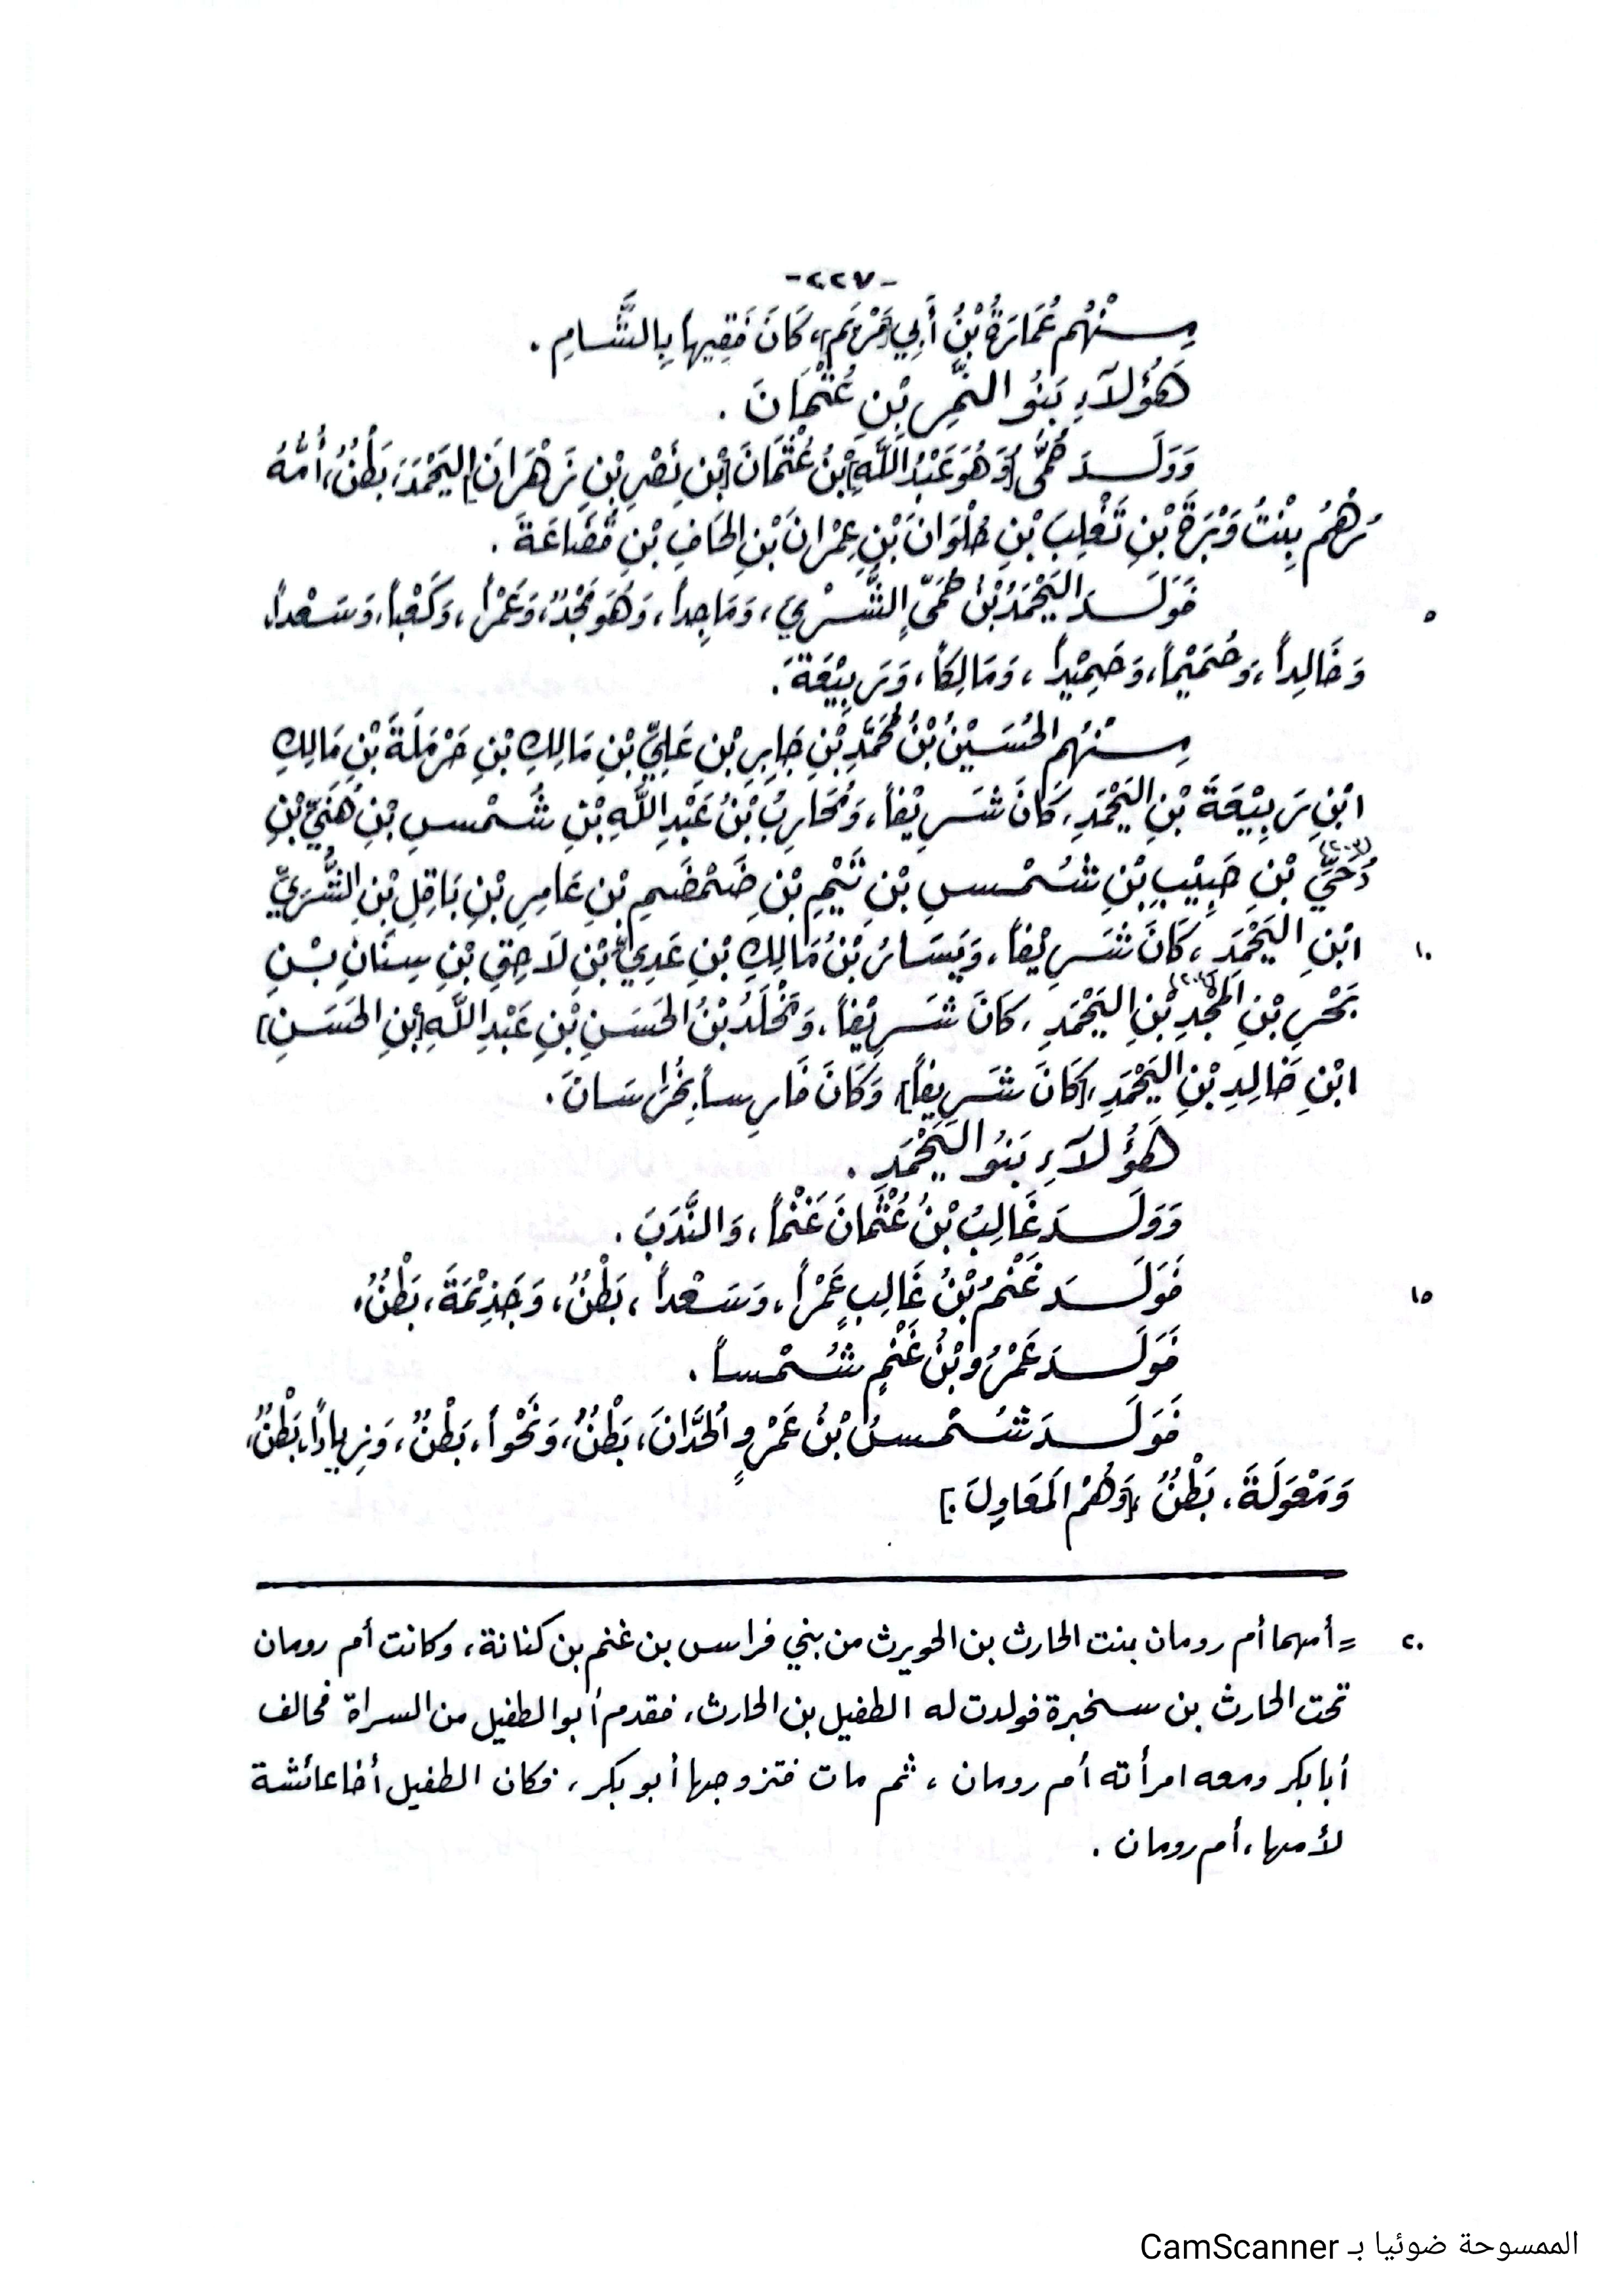 -٢٢٧-
مِنْهُم عُمَارَةُ بْنُ أَبِي [مَرْيَمَ]، كَانَ فَقِيهاً بِالشَّامِ .
هَؤُلَاءِ بَنُو النَّمِرِ بْنِ عُثْمَانَ .
وَوَلَدَ حُمَّى [وَهُوَ عَبْدُ اللَّهِ] بْنُ عُثْمَانَ [بْنِ نَصْرِ بْنِ زَهْرَانَ] اليَحْمَدَ، بَطْنٌ، أُمُّهُ
رُهْمُ بِنْتُ وَبَرَةَ بْنِ تَغْلِبَ بْنِ حُلْوَانَ بْنِ عِمْرَانَ بْنِ الحَافِ بْنِ قُضَاعَةَ .
٥ فَوَلَدَ اليَحْمَدُ بْنُ حُمَّى الشَّرِيَ، وَمَاجِداً، وَهُوَ مَجْدٌ، وَعَمْراً، وَكَعْباً، وَسَعْداً،
وَخَالِداً، وَحُمَيْماً، وَحَمِيْداً، وَمَالِكاً، وَرَبِيْعَةَ .
مِنْهُم الحُسَيْنُ بْنُ مُحَمَّدِ بْنِ جَابِرِ بْنِ عَلِيِّ بْنِ مَالِكِ بْنِ حَرْمَلَةَ بْنِ مَالِكِ
ابْنِ رَبِيْعَةَ بْنِ اليَحْمَدِ، كَانَ شَرِيْفاً، وَمُحَارِبُ بْنُ عَبْدِ اللَّهِ بْنِ شَمْسِ بْنِ هَنِيِّ بْنِ
دُحَيِّ (٢٠٣) بْنِ حَبِيْبِ بْنِ شُمْسِ بْنِ تَيْمِ بْنِ ضَمْضَمِ بْنِ عَامِرِ بْنِ بَاقِلِ بْنِ الشَّرِيِّ
١٠ ابْنِ اليَحْمَدِ، كَانَ شَرِيْفاً، وَيَسَارُ بْنُ مَالِكِ بْنِ عَدِيِّ بْنِ لَاحِقِ بْنِ سِنَانِ بْنِ
بَحْرِ بْنِ المَجْدِ بْنِ اليَحْمَدِ، كَانَ شَرِيْفاً، وَمَخْلَدُ بْنُ الحَسَنِ بْنِ عَبْدِ اللَّهِ [بْنِ الحَسَنِ]
ابْنِ خَالِدِ بْنِ اليَحْمَدِ، [كَانَ شَرِيفاً]، وَكَانَ فَارِساً بِخُرَاسَانَ .
هَؤُلَاءِ بَنُو اليَحْمَدِ .
وَوَلَدَ غَالِبُ بْنُ عُثْمَانَ غَنْماً، وَالنَّدَبَ .
١٥ فَوَلَدَ غَنْمُ بْنُ غَالِبٍ عَمْراً، وَسَعْداً، بَطْنٌ، وَجَذِيْمَةَ، بَطْنٌ،
فَوَلَدَ عَمْرُو بْنُ غَنْمٍ شُمْساً .
فَوَلَدَ شُمْسُ بْنُ عَمْرٍو الحُدَّانَ، بَطْنٌ، وَنَحْواً، بَطْنٌ، وَزِيَاداً، بَطْنٌ،
وَمَعْوَلَةَ، بَطْنٌ، [وَهُمْ المَعَاوِلَ .]
٢٠ = أمهما أم رومان بنت الحارث بن الحويرث من بني فراس بن غنم بن كنانة، وكانت أم رومان
تحت الحارث بن سخبرة فولدت له الطفيل بن الحارث، فقدم أبو الطفيل من السراة فحالف
أبا بكر ومعه امرأته أم رومان، ثم مات فتزوجها أبو بكر، فكان الطفيل أخا عائشة
لأمها، أم رومان .
الممسوحة ضوئيا بـ CamScanner